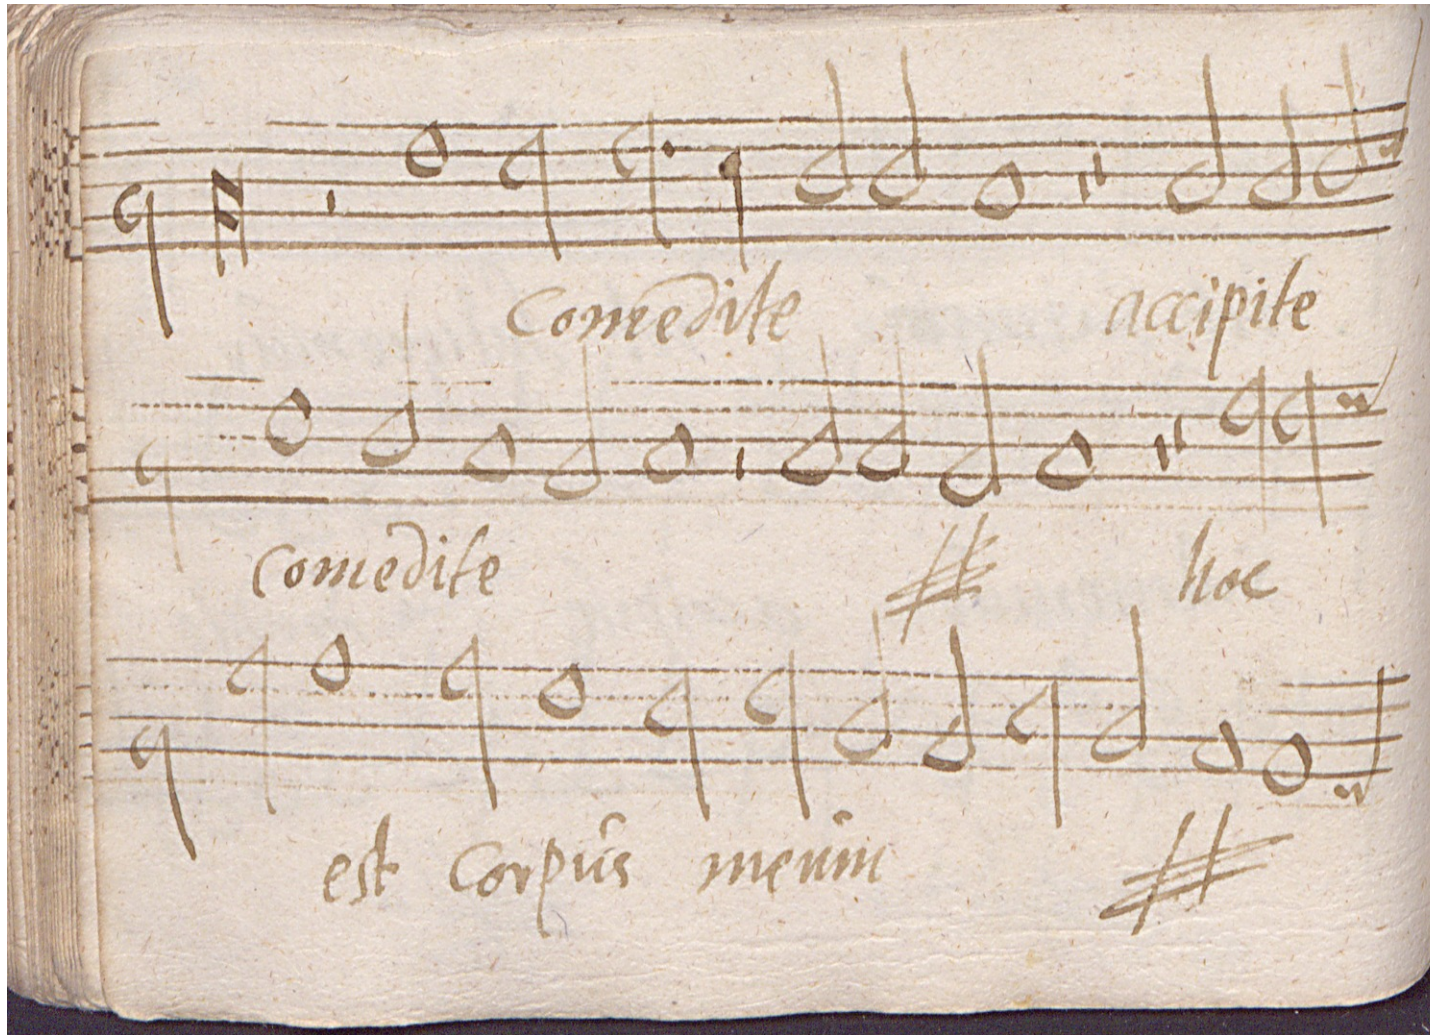 Comedite accipite
comedite hoc
est corpus meum